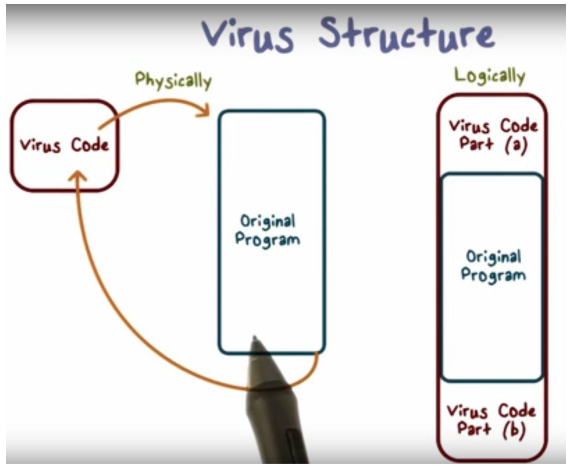 Virus Structure
Physically
Logically
Virus Code
Original
Program
Virus Code
Part (a)
Original
Program
Virus Code
Part (b)